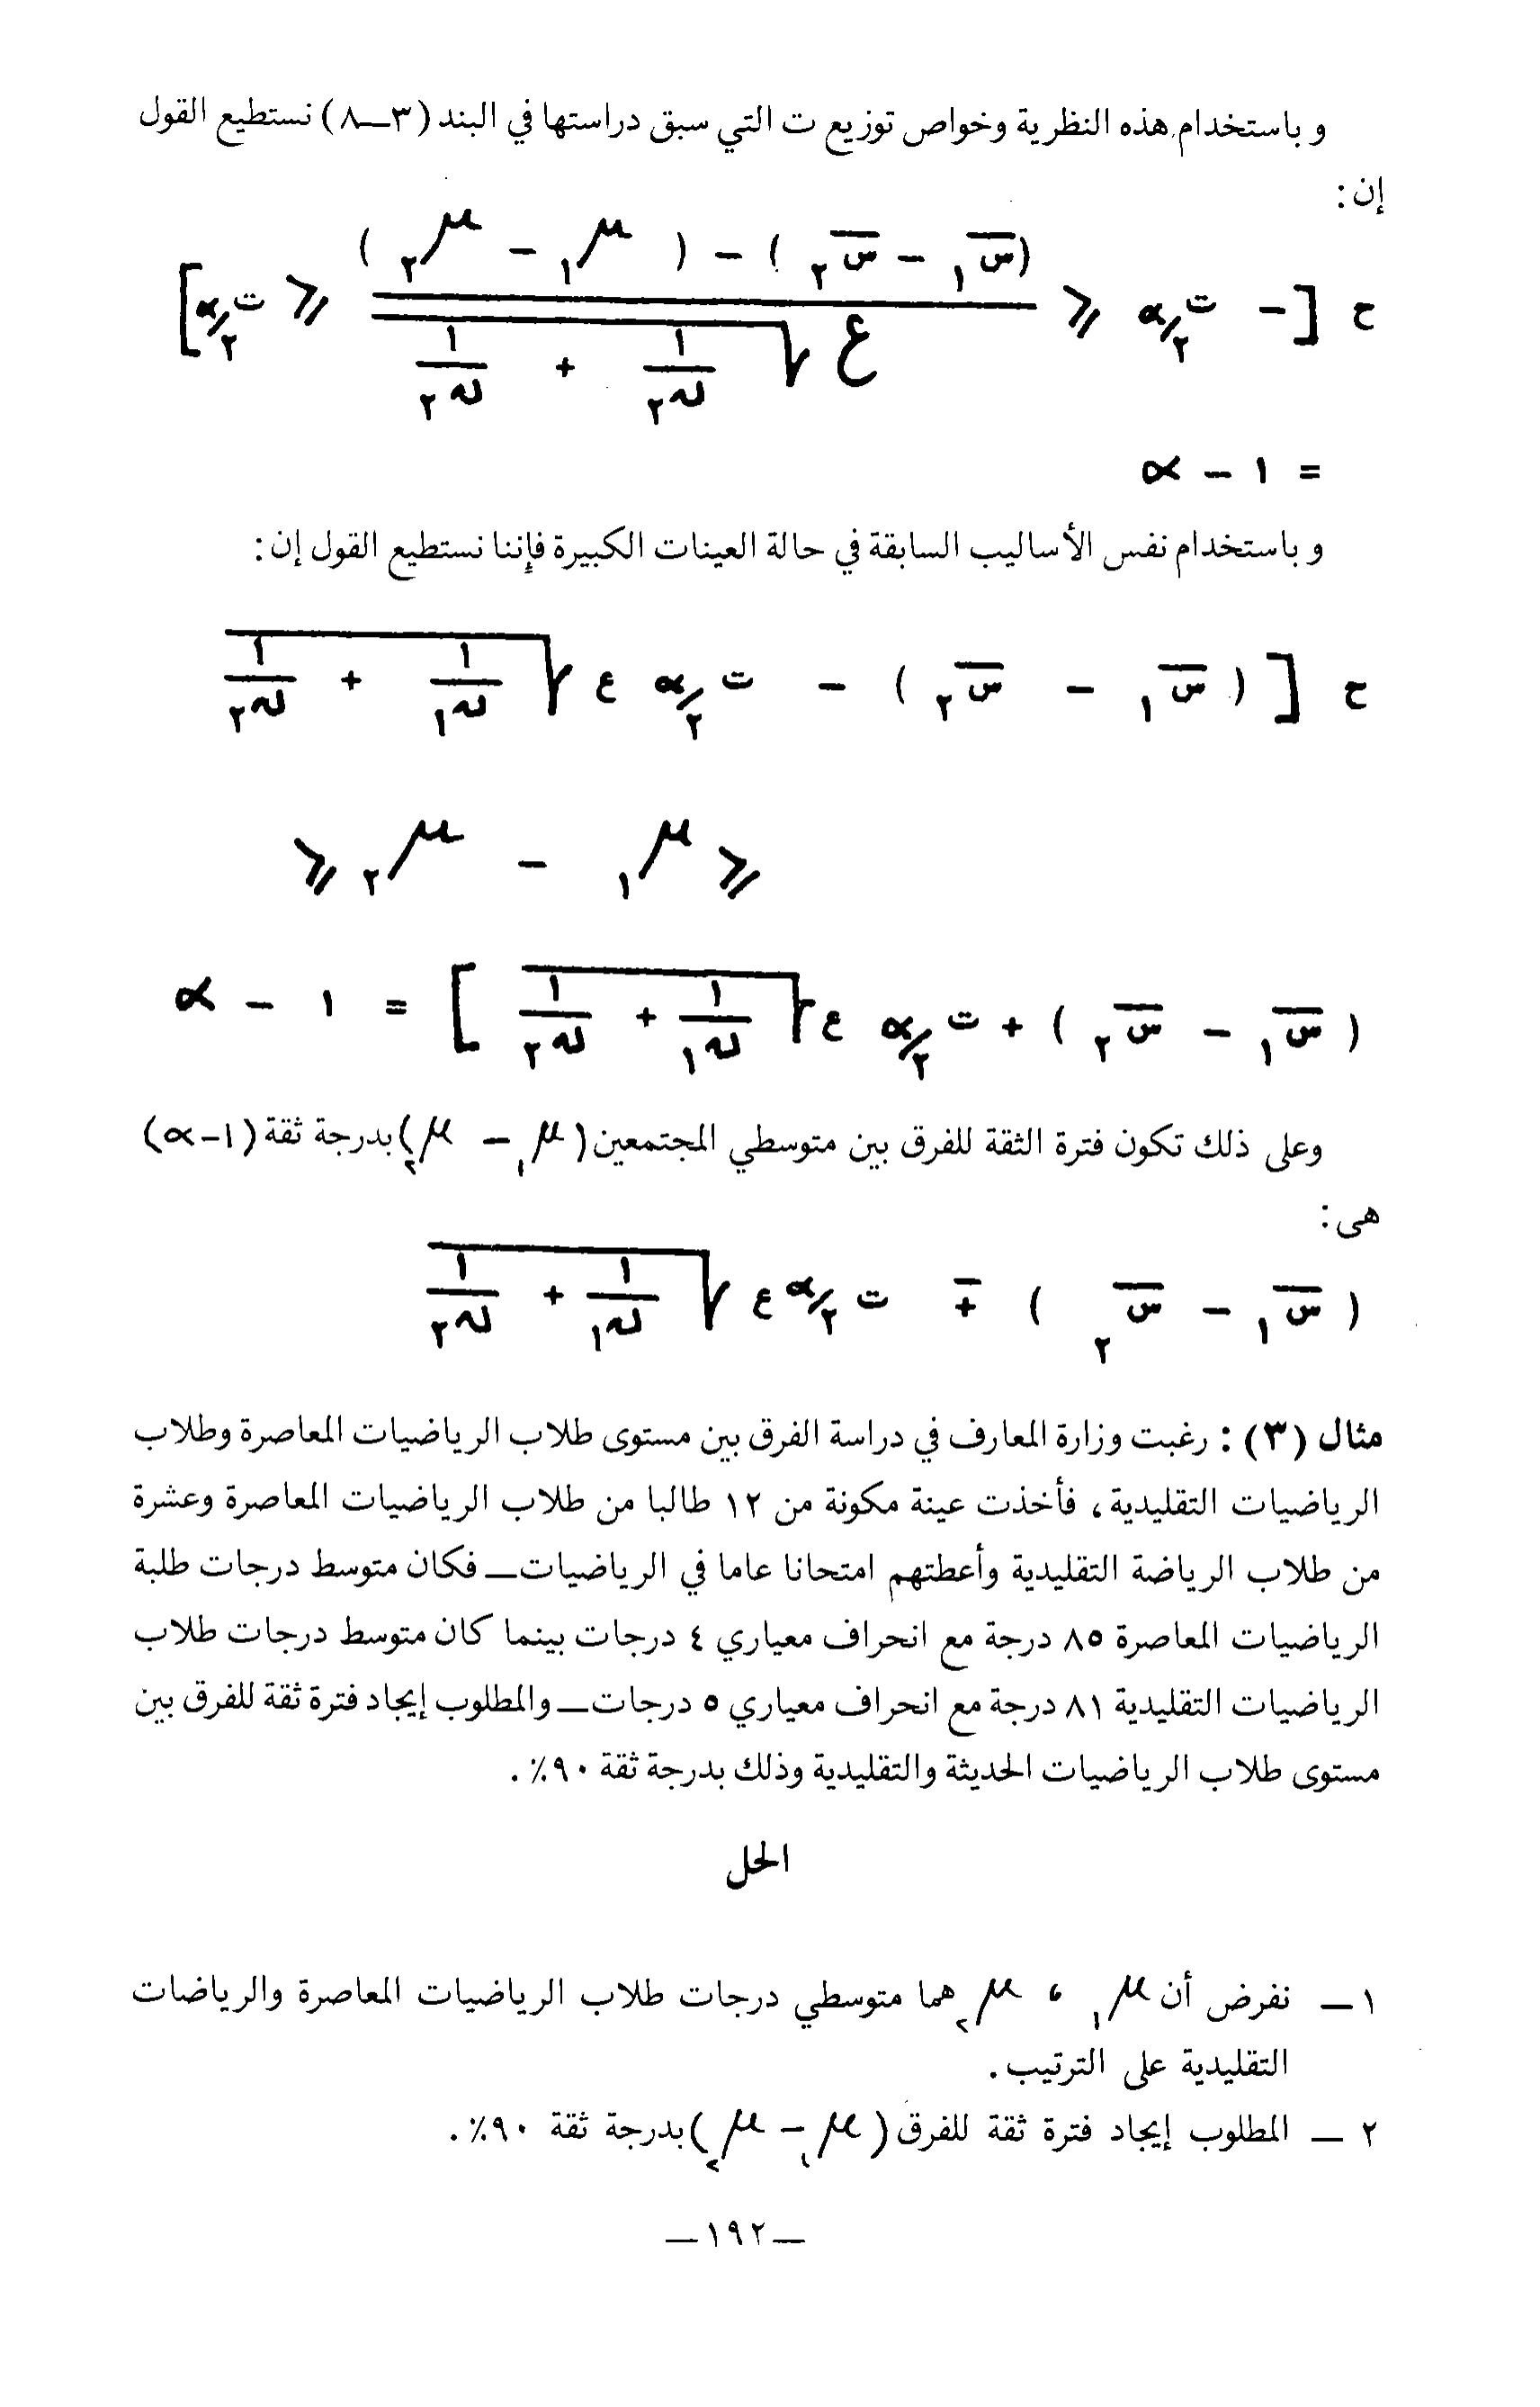 و باستخدام هذه النظرية وخواص توزيع ت التي سبق دراستها في البند (٣—٨) نستطيع القول
إن :
ح [ − ت α/٢ ⩽ ((س̅١ − س̅٢) − (μ١ − μ٢)) / (ع √(١/ن٢ + ١/ن٢)) ⩽ ت α/٢ ]
= ١ − α
و باستخدام نفس الأساليب السابقة في حالة العينات الكبيرة فإننا نستطيع القول إن :
ح [ (س̅١ − س̅٢) − ت α/٢ ع √(١/ن١ + ١/ن٢)
⩽ μ١ − μ٢ ⩽
(س̅١ − س̅٢) + ت α/٢ ع √(١/ن١ + ١/ن٢) ] = ١ − α
وعلى ذلك تكون فترة الثقة للفرق بين متوسطي المجتمعين (μ١ − μ٢) بدرجة ثقة (١−α)
هى :
(س̅١ − س̅٢) ∓ ت α/٢ ع √(١/ن١ + ١/ن٢)
مثال (٣) : رغبت وزارة المعارف في دراسة الفرق بين مستوى طلاب الرياضيات المعاصرة وطلاب
الرياضيات التقليدية ، فأخذت عينة مكونة من ١٢ طالبا من طلاب الرياضيات المعاصرة وعشرة
من طلاب الرياضة التقليدية وأعطتهم امتحانا عاما في الرياضيات— فكان متوسط درجات طلبة
الرياضيات المعاصرة ٨٥ درجة مع انحراف معياري ٤ درجات بينما كان متوسط درجات طلاب
الرياضيات التقليدية ٨١ درجة مع انحراف معياري ٥ درجات— والمطلوب إيجاد فترة ثقة للفرق بين
مستوى طلاب الرياضيات الحديثة والتقليدية وذلك بدرجة ثقة ٩٠٪ .
الحل
١ — نفرض أن μ١ ، μ٢ هما متوسطي درجات طلاب الرياضيات المعاصرة والرياضات
التقليدية على الترتيب .
٢ — المطلوب إيجاد فترة ثقة للفرق (μ١ − μ٢) بدرجة ثقة ٩٠٪ .
—١٩٢—